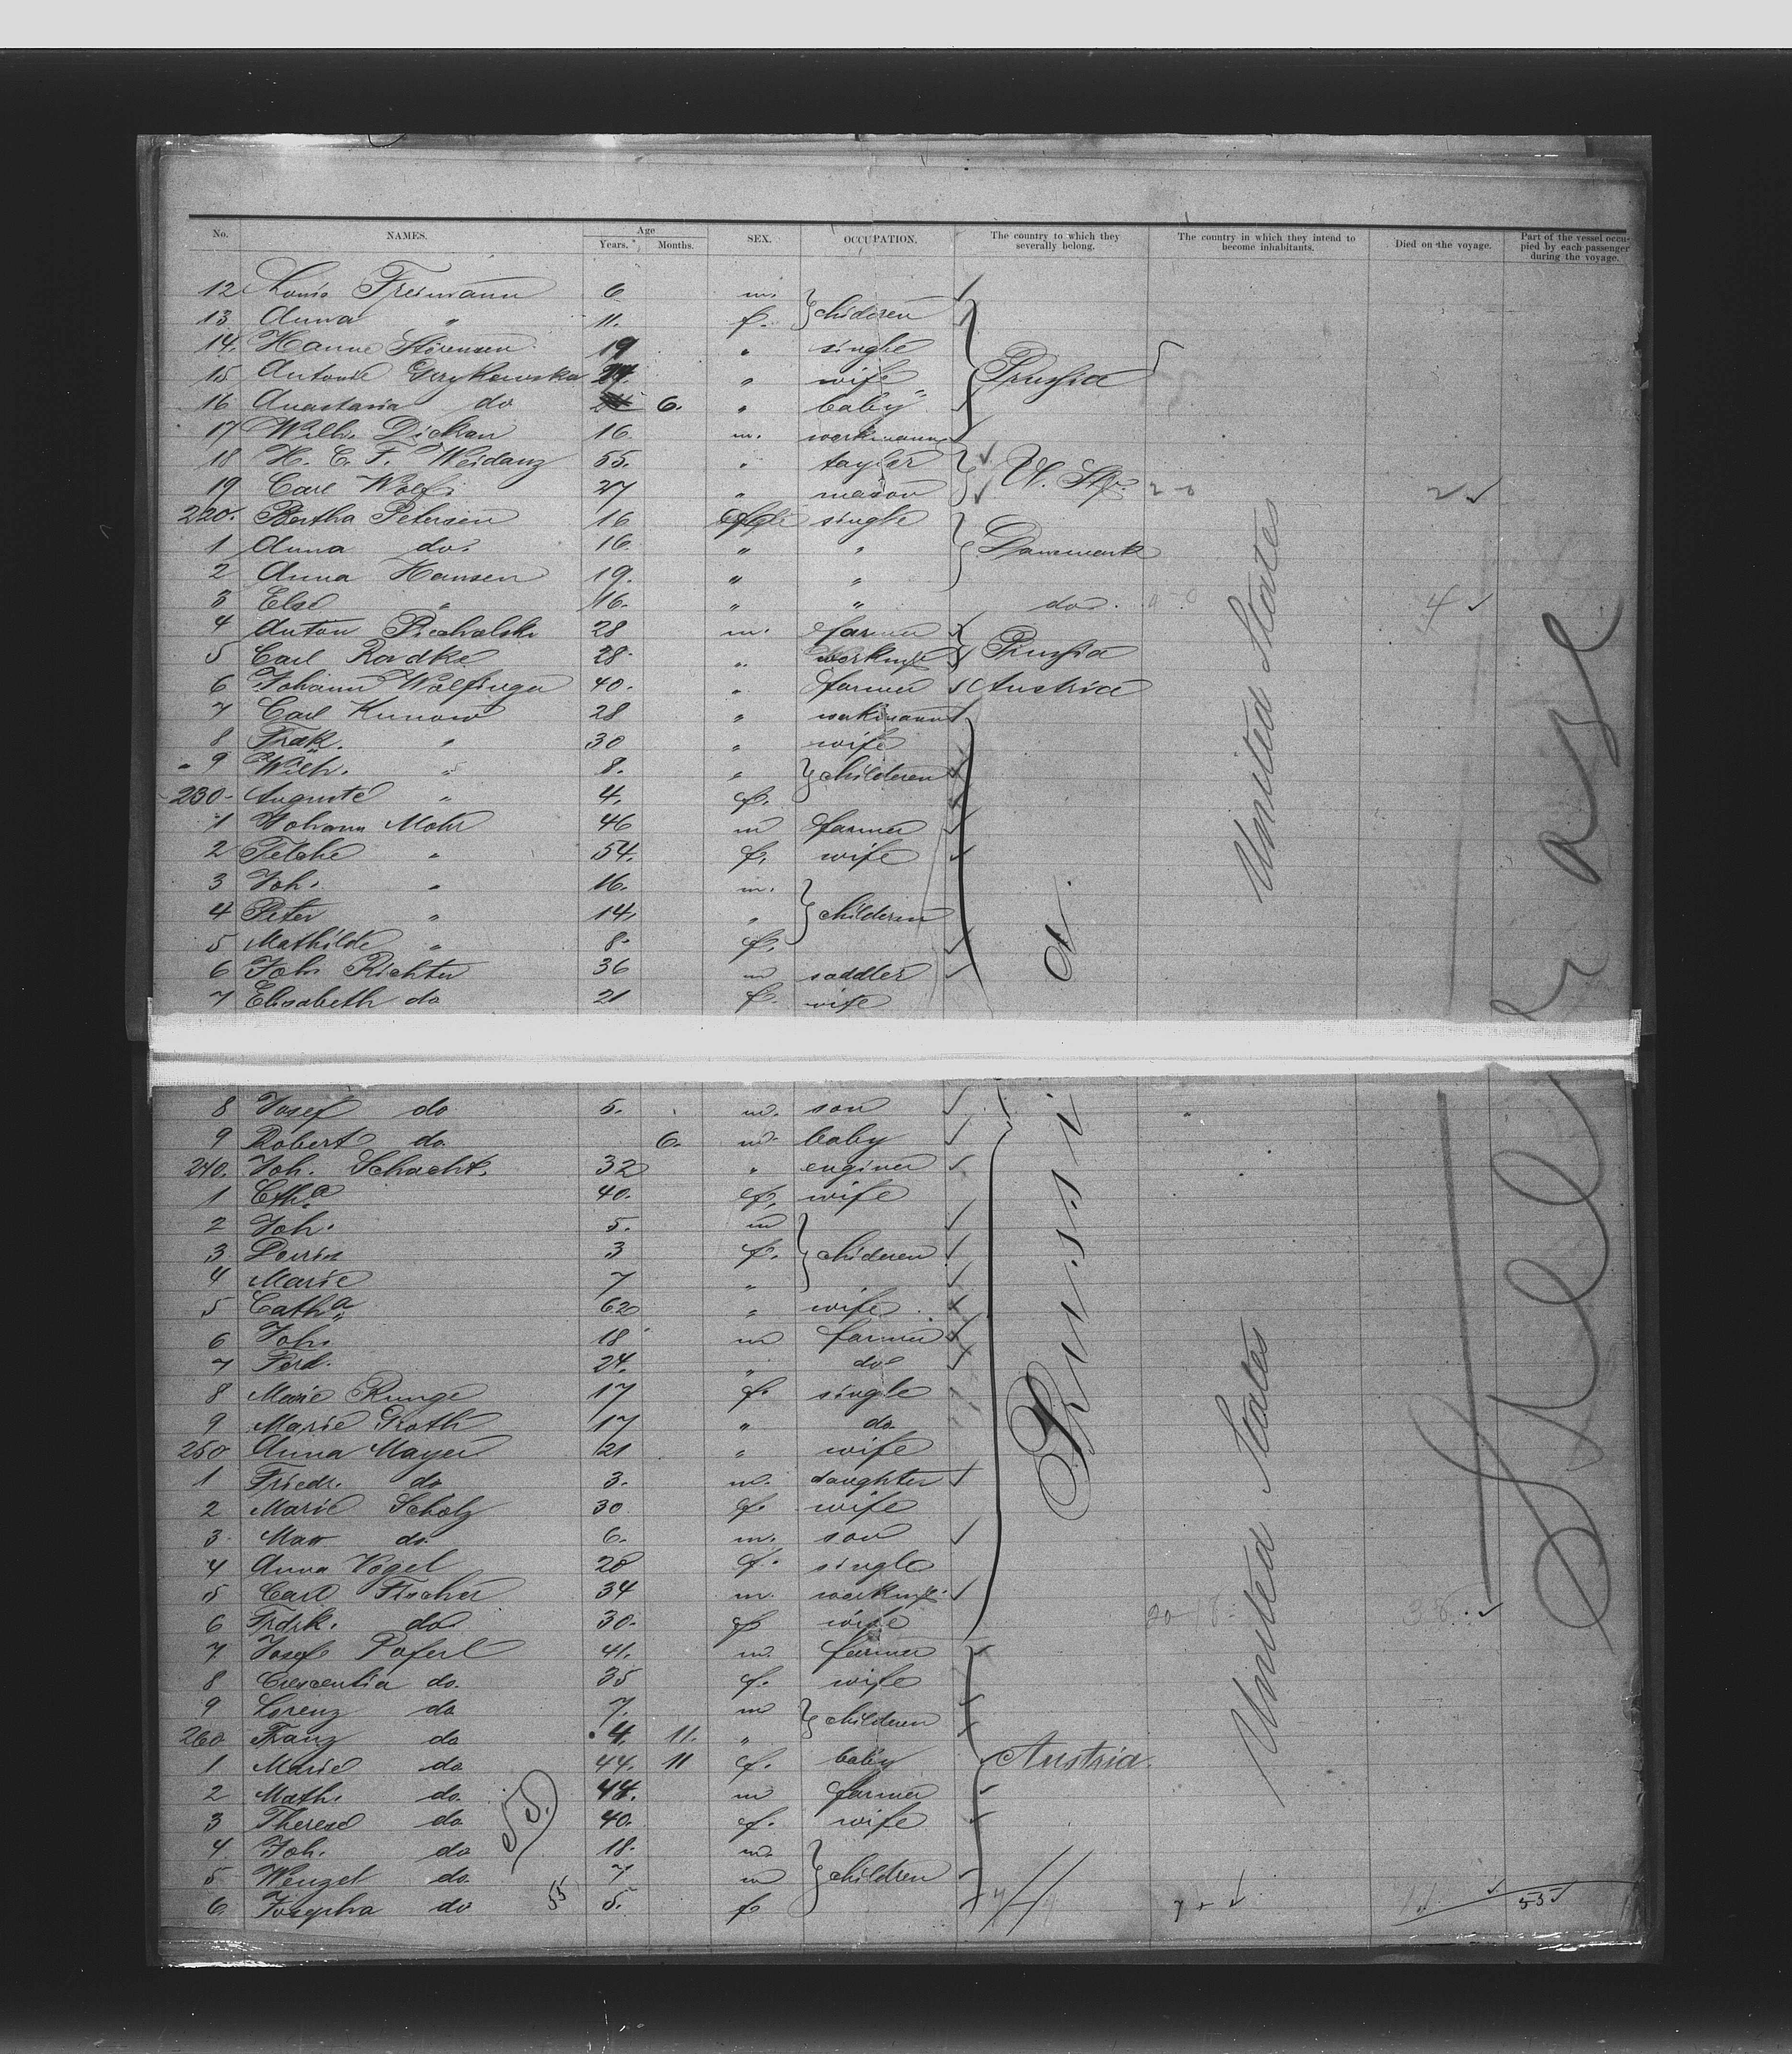 No. NAMES. Age Years. Months. SEX. OCCUPATION. The country to which they severally belong. The country in which they intend to become inhabitants. Died on the voyage. Part of the vessel occupied by each passenger during the voyage.
12 Louis Freimann 6 m.
13 Anna " 11. f. childeren
14. Hanne Sörensen 19 " single
15 Antonie " wife Prussia
16 Anastasia do 6. " baby
17 Wilh. Dickan 16 m. workmann
18 H. C. F. Weidanz 55. " taylor
19 Carl Wolf 27 " mason U. St. 2
220. Bertha Petersen 16 single
1 Anna do. 16. " " Dannmark
2 Anna Hansen 19. " "
3 Else " 16. " " do. 4
4 Anton 28 m. farmer
5 Carl Radke 28 " Prussia
6 Johann Wolfinger 40. " farmer Austria
7 Carl Kunow 28 " workmann
8 Frdk. " 30 " wife
9 Wilh. " 8. " childeren
230 Auguste " 4. f.
1 Johann Mohr 46 m farmer
2 " 54. f. wife
3 Joh. " 16. m.
4 Peter " 14. " childeren
5 Mathilde " 8. f.
6 Joh. Richter 36 m saddler
7 Elisabeth do 21 f. wife
8 Josef do 5. m. son
9 Robert do 6. m. baby
240. Joh. Schacht 32 " enginer
1 Cth.a 40. f. wife
2 Joh. 5. m
3 3 f. childeren
4 Marie 7 "
5 Catha 62 " wife
6 Joh. 18 m farmer
7 Ferd. 24. " do
8 Marie Runge 17 f. single
9 Marie Groth 17 " do
250 Anna Mayer 21 " wife
1 Friedr. do 3. m. daughter
2 Marie Scholz 30 f. wife
3 Max do 6. m. son
4 Anna Vogel 20 f. single
5 Carl Fischer 34 m.
6 Frdrk. do 30. f wife
7 Josef Poferl 41. m. farmer
8 Crescentia do. 35 f. wife
9 Lorenz do 7. m childeren
260 Franz do 4. 11. "
1 Marie do 44. 11 f. baby Austria
2 Math. do. 44. m farmer
3 Therese do 40. f. wife
4. Joh. do 18. m.
5 Wenzel do. 7 m children
6. Josepha do 55 5. f 55
Prussia
United States
United States
Steerage